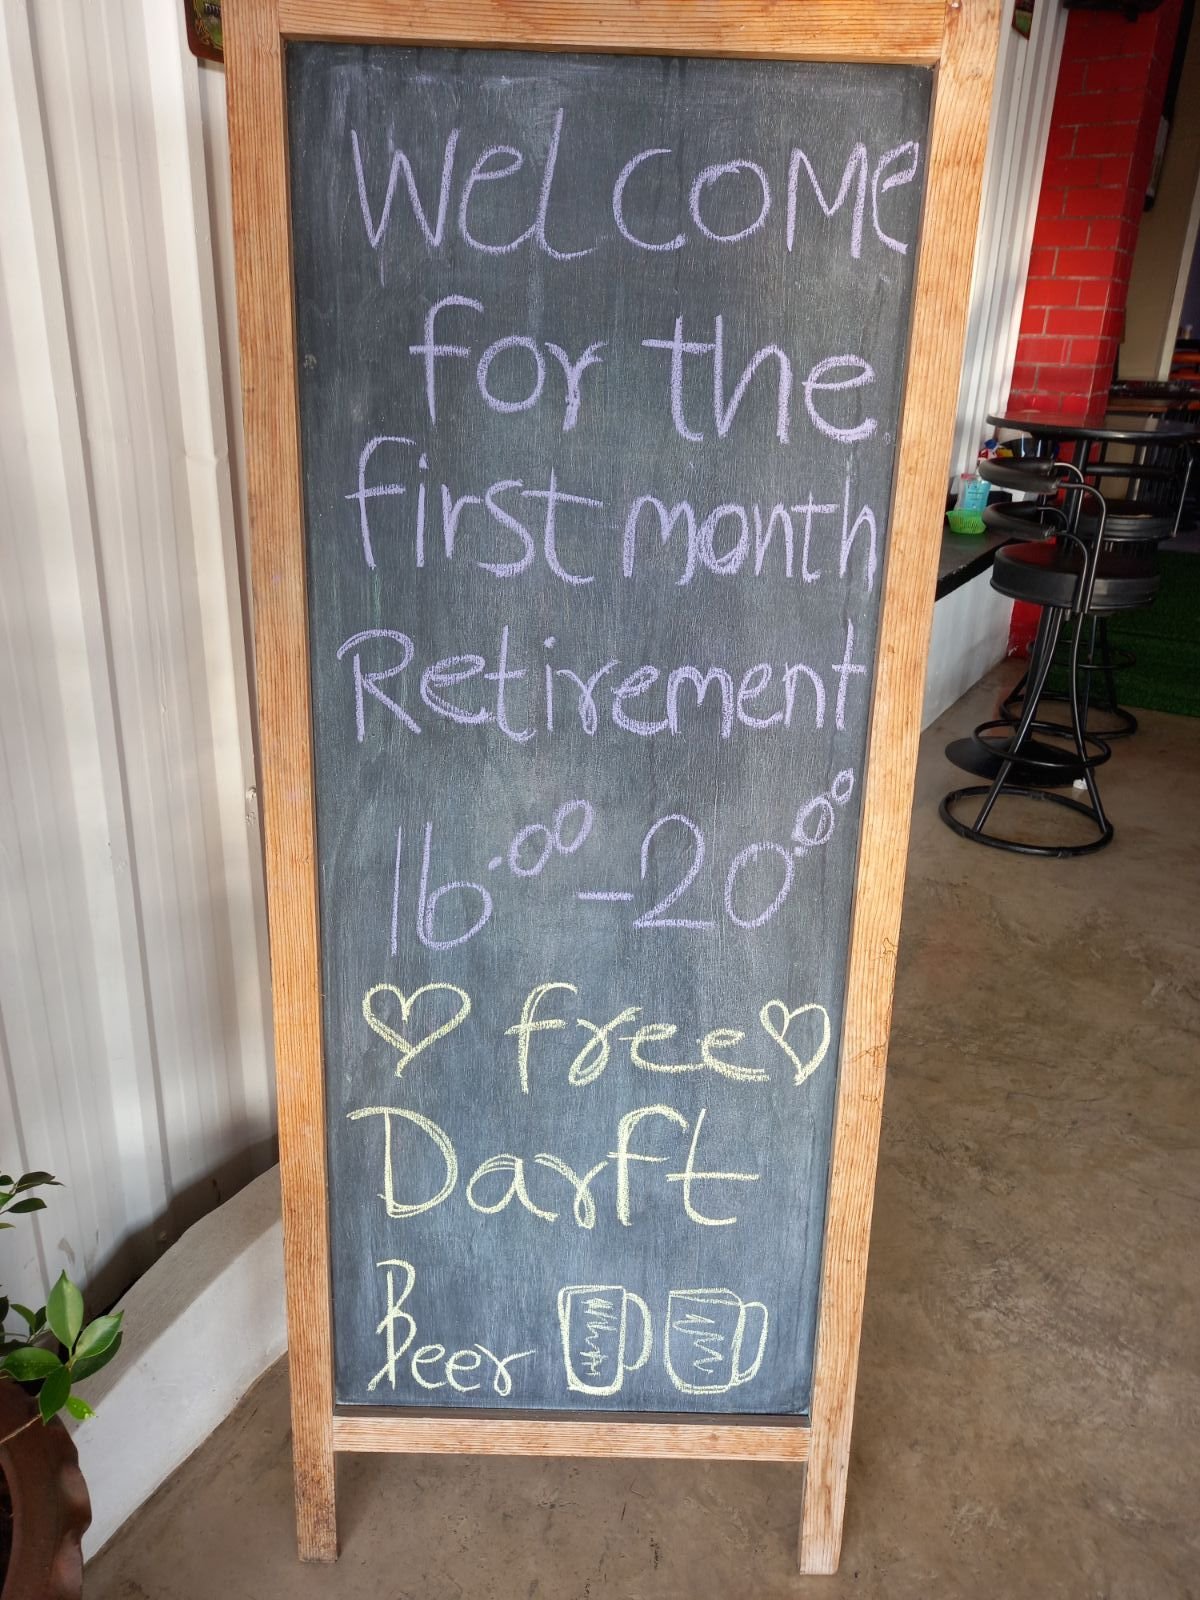 Welcome
for the
first month
Retirement
16.00-20.00
free
Darft
Beer